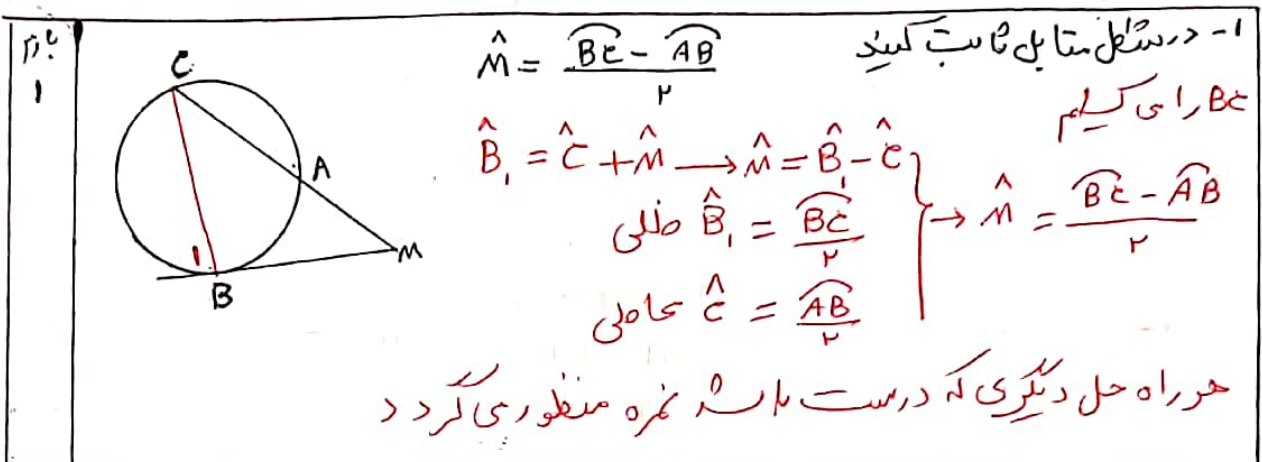 بارم
۱
۱- در شکل مقابل ثابت کنید M̂ = (B͡C - A͡B)/۲
BC را می کشیم
B̂₁ = Ĉ + M̂ → M̂ = B̂₁ - Ĉ
ظلی B̂₁ = B͡C/۲
محاطی Ĉ = A͡B/۲
→ M̂ = (B͡C - A͡B)/۲
C
A
M
1
B
هر راه حل دیگری که درست باشد نمره منظور می گردد